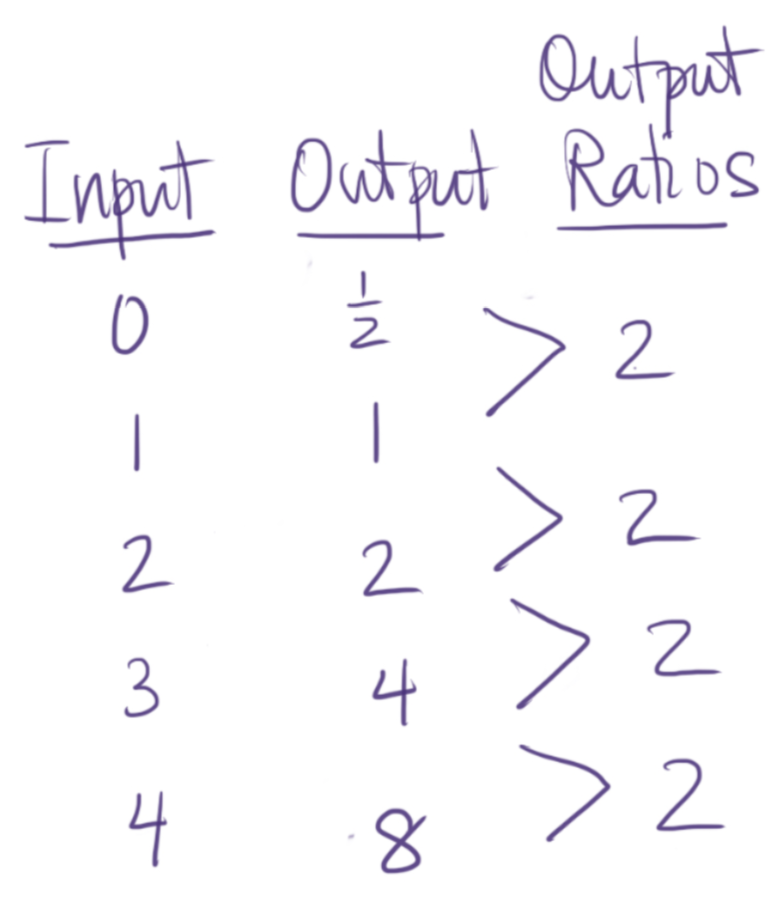 Input Output Output Ratios
0 1/2
> 2
1 1
> 2
2 2
> 2
3 4
> 2
4 8